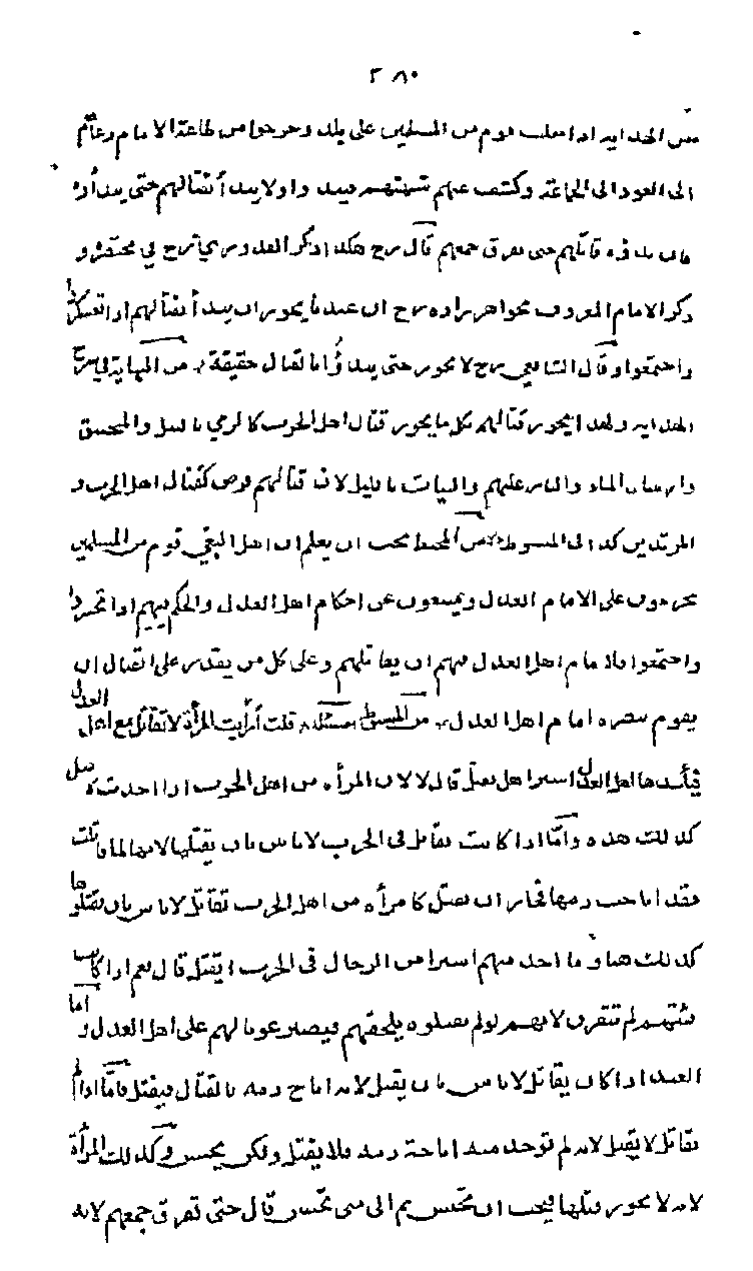 ٣٨٠
من الهدايه اذا تغلب قوم من المسلمين على بلد وخرجوا من طاعة الامام دعاهم
الى العود الى الجماعة وكشف عنهم شبهتهم ولا يبدأ بقتالهم حتى يبدأوه
فان بدؤه قاتلهم حتى تفرق جمعهم قال رح هكذا ذكر القدوري رح في مختصره و
ذكر الامام المعروف بخواهر زاده رح ان عندنا يجوز ان يبدأ بقتالهم اذا تعسكروا
واجتمعوا وقال الشافعي رح لا يجوز حتى يبدؤا بالقتال حقيقة من النهاية في شرح
الهدايه ولهذا يجوز قتالهم بكل ما يجوز قتال اهل الحرب كالرمي بالنبل والمنجنيق
وارسال الماء والنار عليهم والبيات بالليل لان قتالهم فرض كقتال اهل الحرب و
المرتدين كذا في المبسوط من المحيط يجب ان يعلم ان اهل البغي قوم من المسلمين
يخرجون على الامام العدل ويمتنعون عن احكام اهل العدل والحكم فيهم اذا تجهزوا
واجتمعوا فلامام اهل العدل ان يقاتلهم وعلى كل من يقدر على القتال ان
يقوم بنصره امام اهل العدل من المبسوط مسئلة قلت أرأيت المرأة لا تقاتل مع اهل العدل
فيأخذها اهل العدل اسيرا هل تقتل قال لا لان المرأه من اهل الحرب اذا اخذت لا تقتل
كذلك هذه وأمّا اذا كانت تقاتل في الحرب لا باس بان يقتلها لانها لما قاتلت
فقد اباحت دمها فجاز ان تقتل كامرأه من اهل الحرب تقاتل لا باس بان يقتلوها
كذلك هنا وما اخذ منهم اسيرا من الرجال في الحرب أيقتل قال نعم اذا كانت
فئتهم لم تتفرق لانهم لو لم يقتلوه يلحقهم فيصير عونا لهم على اهل العدل و اما
العبد اذا كان يقاتل لا باس بان يقتل لانه اباح دمه بالقتال فيقتل فامّا اذا لم
يقاتل لا يقتل لانه لم توجد منه اباحة دمه فلا يقتل ولكن يحبس وكذلك المرأة
لانه لا يجوز قتلها فيجب ان تحبس ثم الى متى تحبس قال حتى تفرق جمعهم لانه